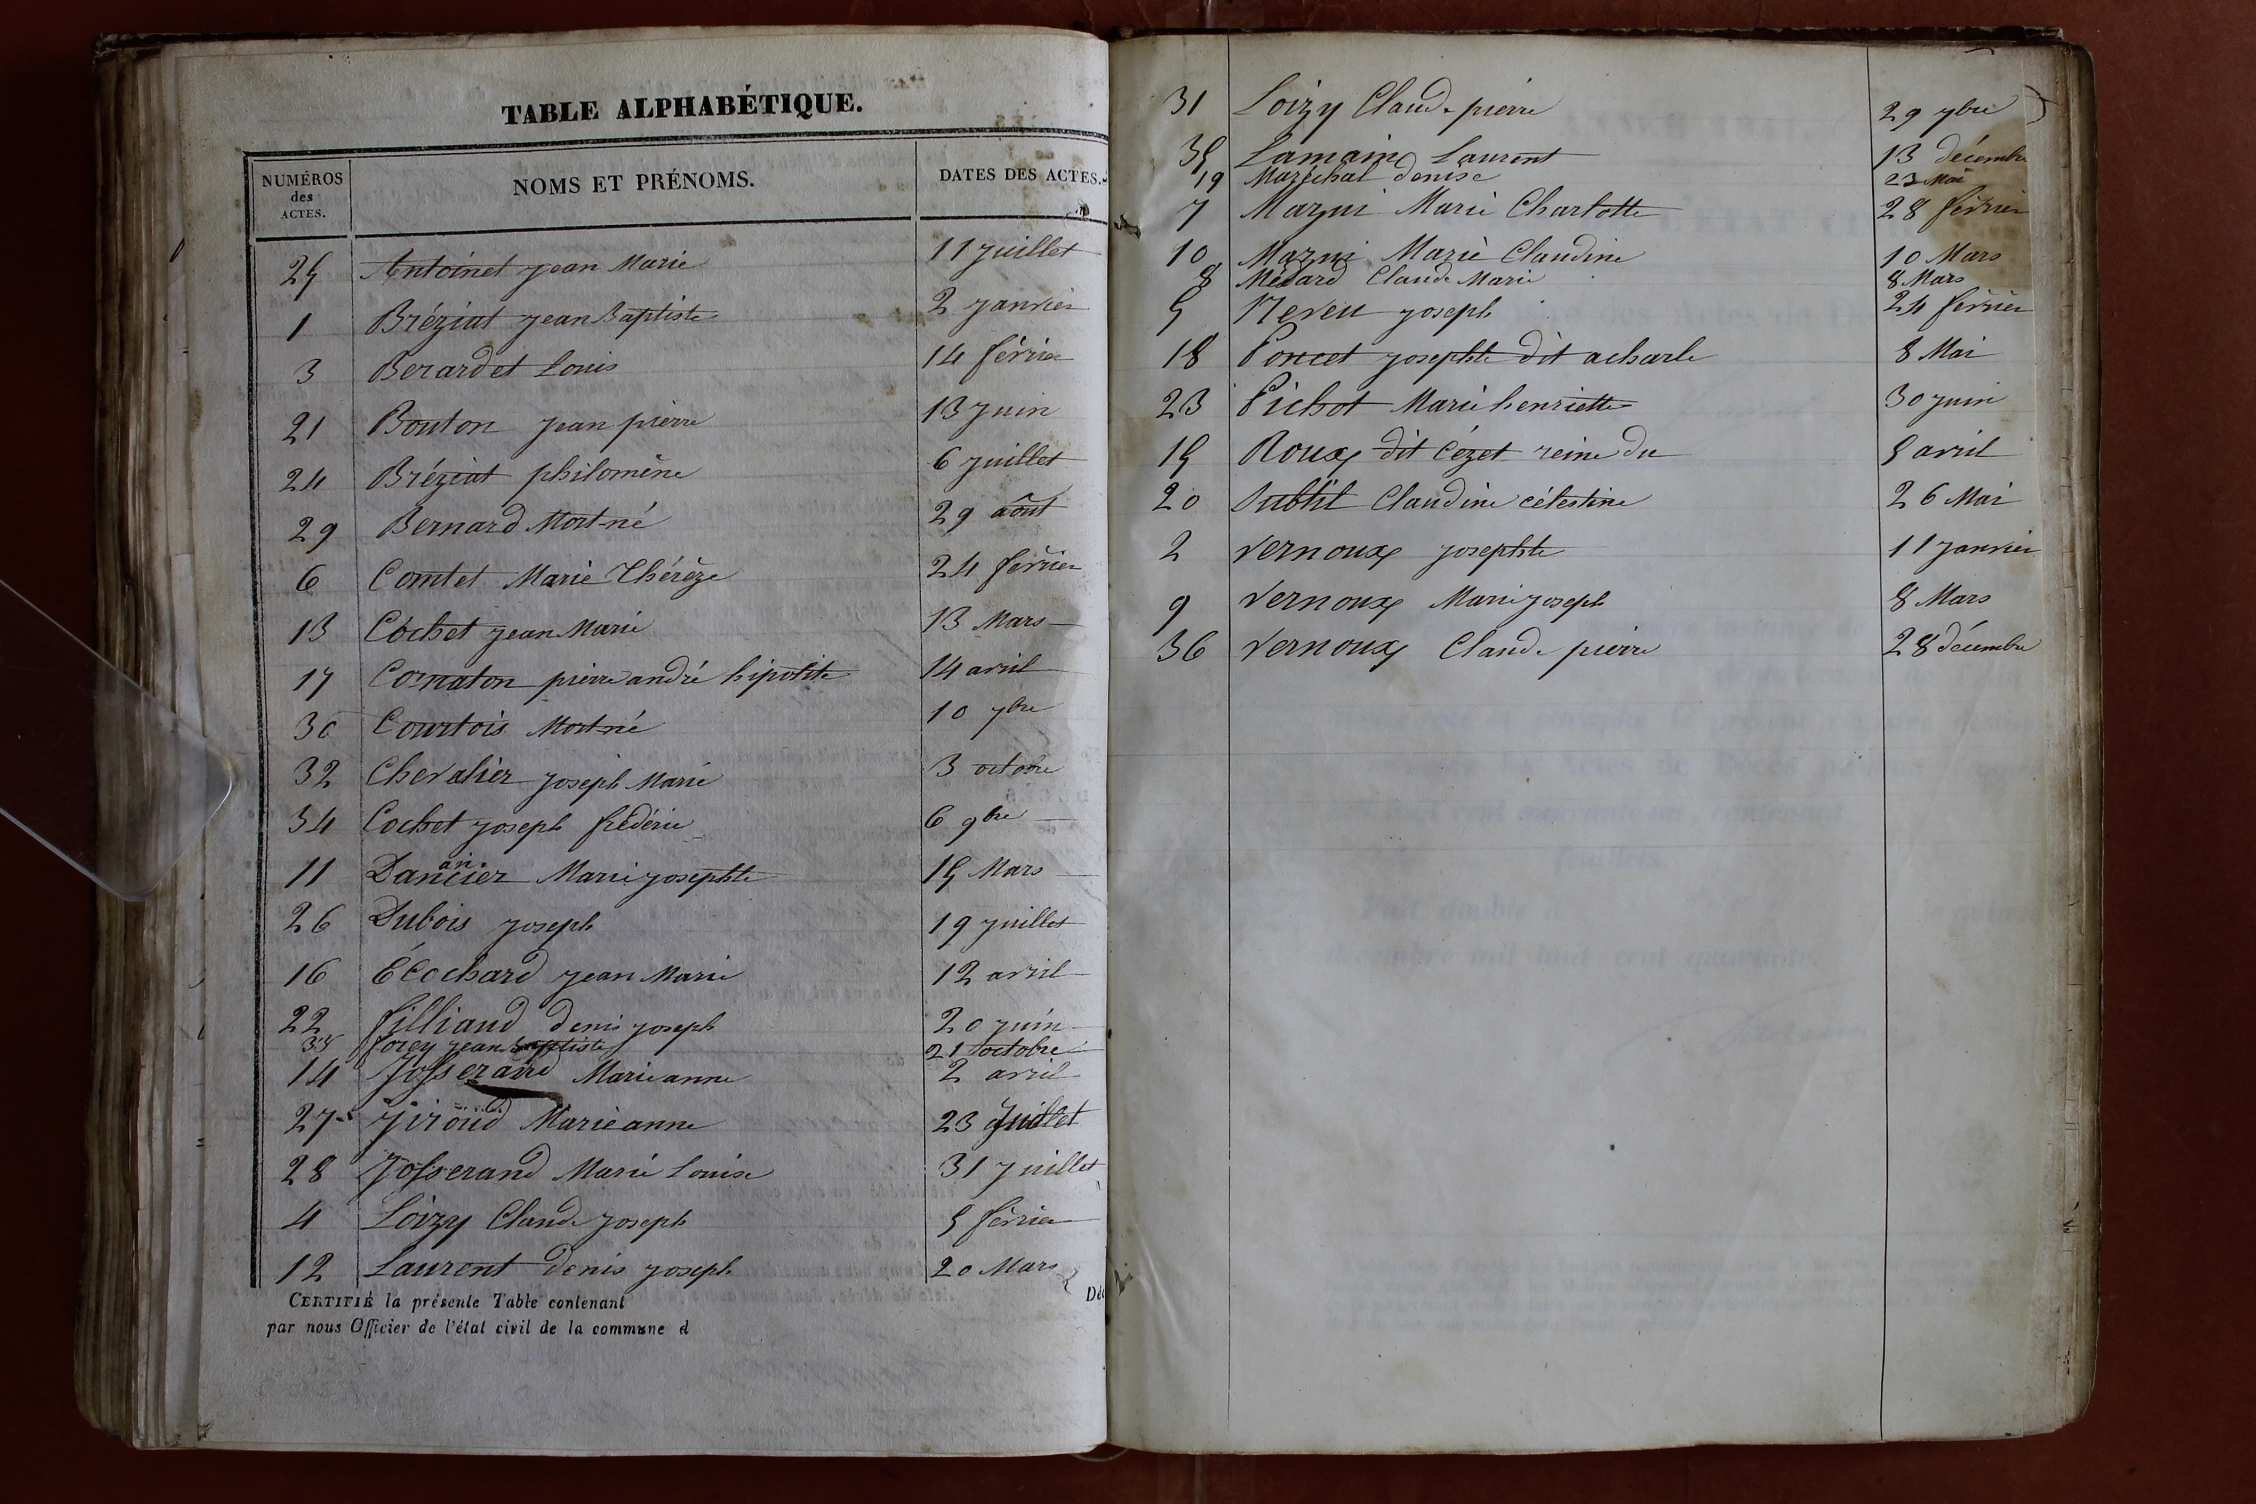 TABLE ALPHABÉTIQUE.
NUMÉROS des ACTES. NOMS ET PRÉNOMS. DATES DES ACTES.
25 Antoinet jean Marie 11 juillet
1 Bréziat jean Baptiste 2 janvier
3 Berardet Louis 14 février
21 Bouton jean pierre 13 juin
24 Bréziat philomène 6 juillet
29 Bernard Mort-né 29 août
6 Comtet Marie Thérèze 24 février
13 Cochet jean Marie 13 Mars
17 Cornaton pierre andré hipolite 14 avril
30 Courtois Mort-né 10 7bre
32 Chevalier joseph Marie 3 octobre
34 Cochet joseph frédéric 6 9bre
11 Dancier Marie josephte 15 Mars
26 Dubois joseph 19 juillet
16 Écochard jean Marie 12 avril
22 filliaud denis joseph 20 juin
33 forey jean Baptiste 21 octobre
14 Josserand Marie anne 2 avril
27 Jiroud Marie anne 23 Juillet
28 Josserand Marie Louise 31 juillet
4 Loizy Claude joseph 5 février
12 Laurent denis joseph 20 Mars
CERTIFIÉ la présente Table contenant
par nous Officier de l'état civil de la commune d
31 Loizy Claude pierre 29 7bre
35 Lamain Laurent 13 décembre
19 Maréchal denise 23 Mai
7 Mazui Marie Charlotte 28 février
10 Mazui Marie Claudine 10 Mars
8 Médard Claude Marie 8 Mars
5 Neveu joseph 24 février
18 Poncet josephte dit acharle 8 Mai
23 Pichot Marie henriette 30 juin
15 Roux dit Cézet reine du 5 avril
20 Subtil Claudine célestine 26 Mai
2 Vernoux josephte 11 janvier
9 Vernoux Marie joseph 8 Mars
36 Vernoux Claude pierre 28 décembre